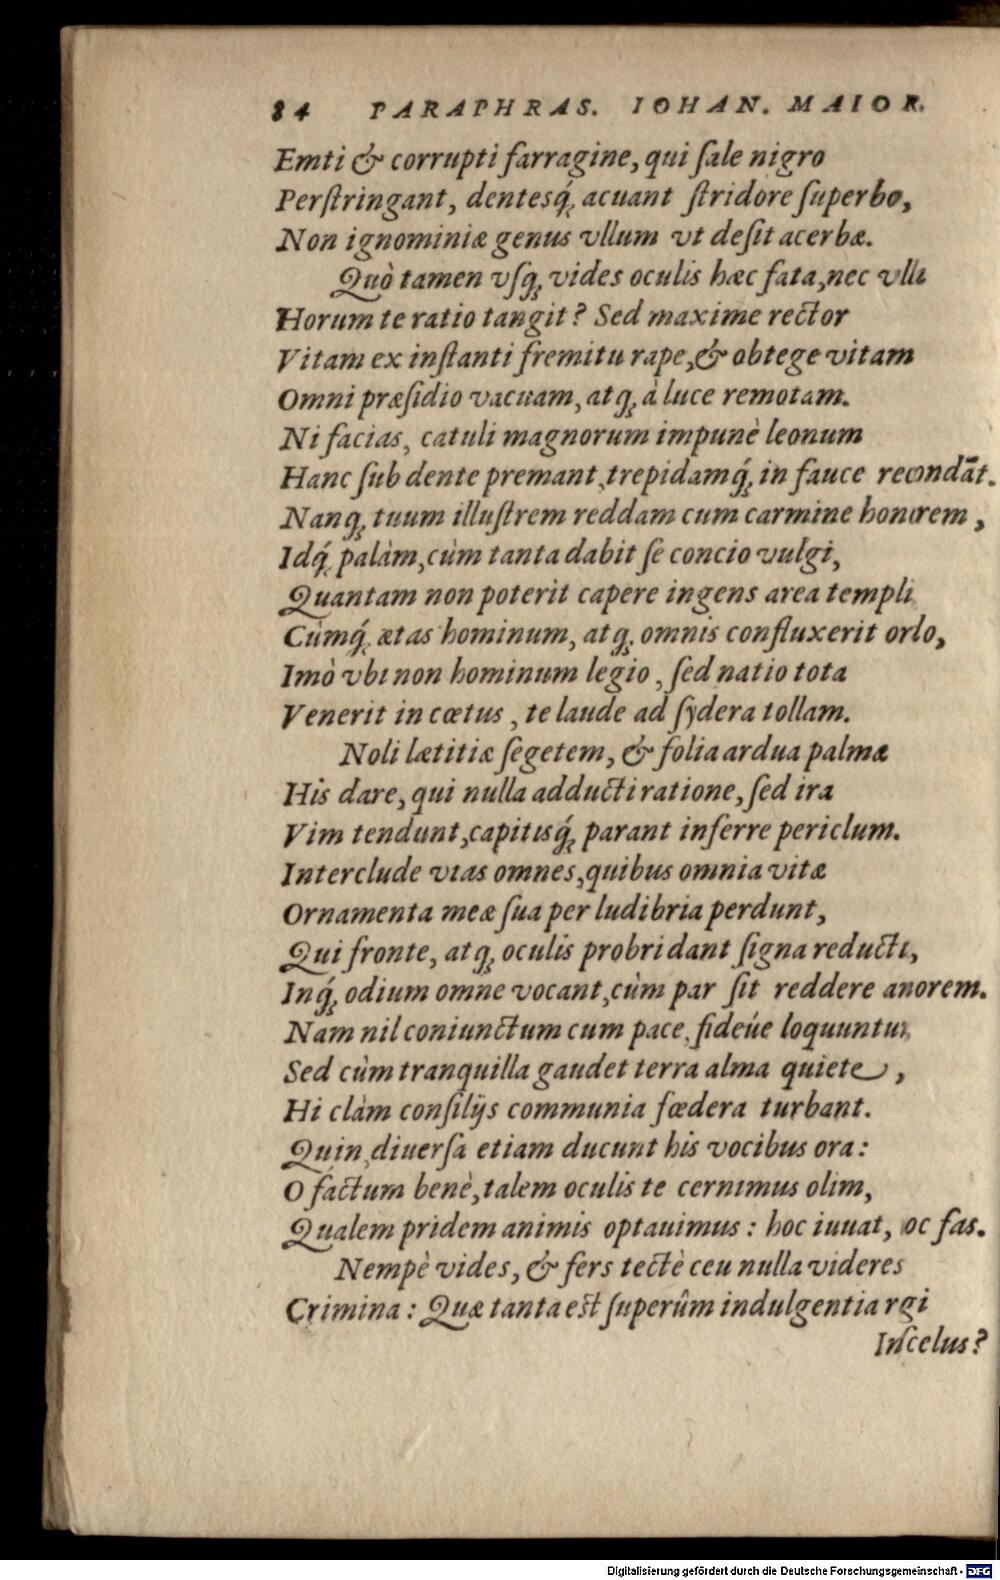 84 PARAPHRAS. IOHAN. MAIOR.
Emti & corrupti farragine, qui ſale nigro
Perſtringant, dentesq́ꝫ acuant ſtridore ſuperbo,
Non ignominiæ genus vllum vt deſit acerbæ.
Quò tamen vſqꝫ vides oculis hæc fata, nec vlla
Horum te ratio tangit? Sed maxime rector
Vitam ex inſtanti fremitu rape, & obtege vitam
Omni præſidio vacuam, atqꝫ à luce remotam.
Ni facias, catuli magnorum impunè leonum
Hanc ſub dente premant, trepidamq́ꝫ in fauce recondāt.
Nanqꝫ tuum illuſtrem reddam cum carmine honorem,
Idq́ꝫ palàm, cùm tanta dabit ſe concio vulgi,
Quantam non poterit capere ingens area templi
Cùmq́ꝫ ætas hominum, atqꝫ omnis confluxerit ordo,
Imò vbi non hominum legio, ſed natio tota
Venerit in cœtus, te laude ad ſydera tollam.
Noli lætitiæ ſegetem, & folia ardua palmæ
His dare, qui nulla adducti ratione, ſed ira
Vim tendunt, capitisq́ꝫ parant inferre periclum.
Interclude vias omnes, quibus omnia vitæ
Ornamenta meæ ſua per ludibria perdunt,
Qui fronte, atqꝫ oculis probri dant ſigna reducti,
Inq́ꝫ odium omne vocant, cùm par ſit reddere amorem.
Nam nil coniunctum cum pace, fideúe loquuntur,
Sed cùm tranquilla gaudet terra alma quiete,
Hi clàm conſilijs communia fœdera turbant.
Quin diuerſa etiam ducunt his vocibus ora:
O factum benè, talem oculis te cernimus olim,
Qualem pridem animis optauimus: hoc iuuat, hoc fas.
Nempè vides, & fers tectè ceu nulla videres
Crimina: Quæ tanta eſt ſuperûm indulgentia rgi
Inſcelus?
Digitalisierung gefördert durch die Deutsche Forschungsgemeinschaft - DFG